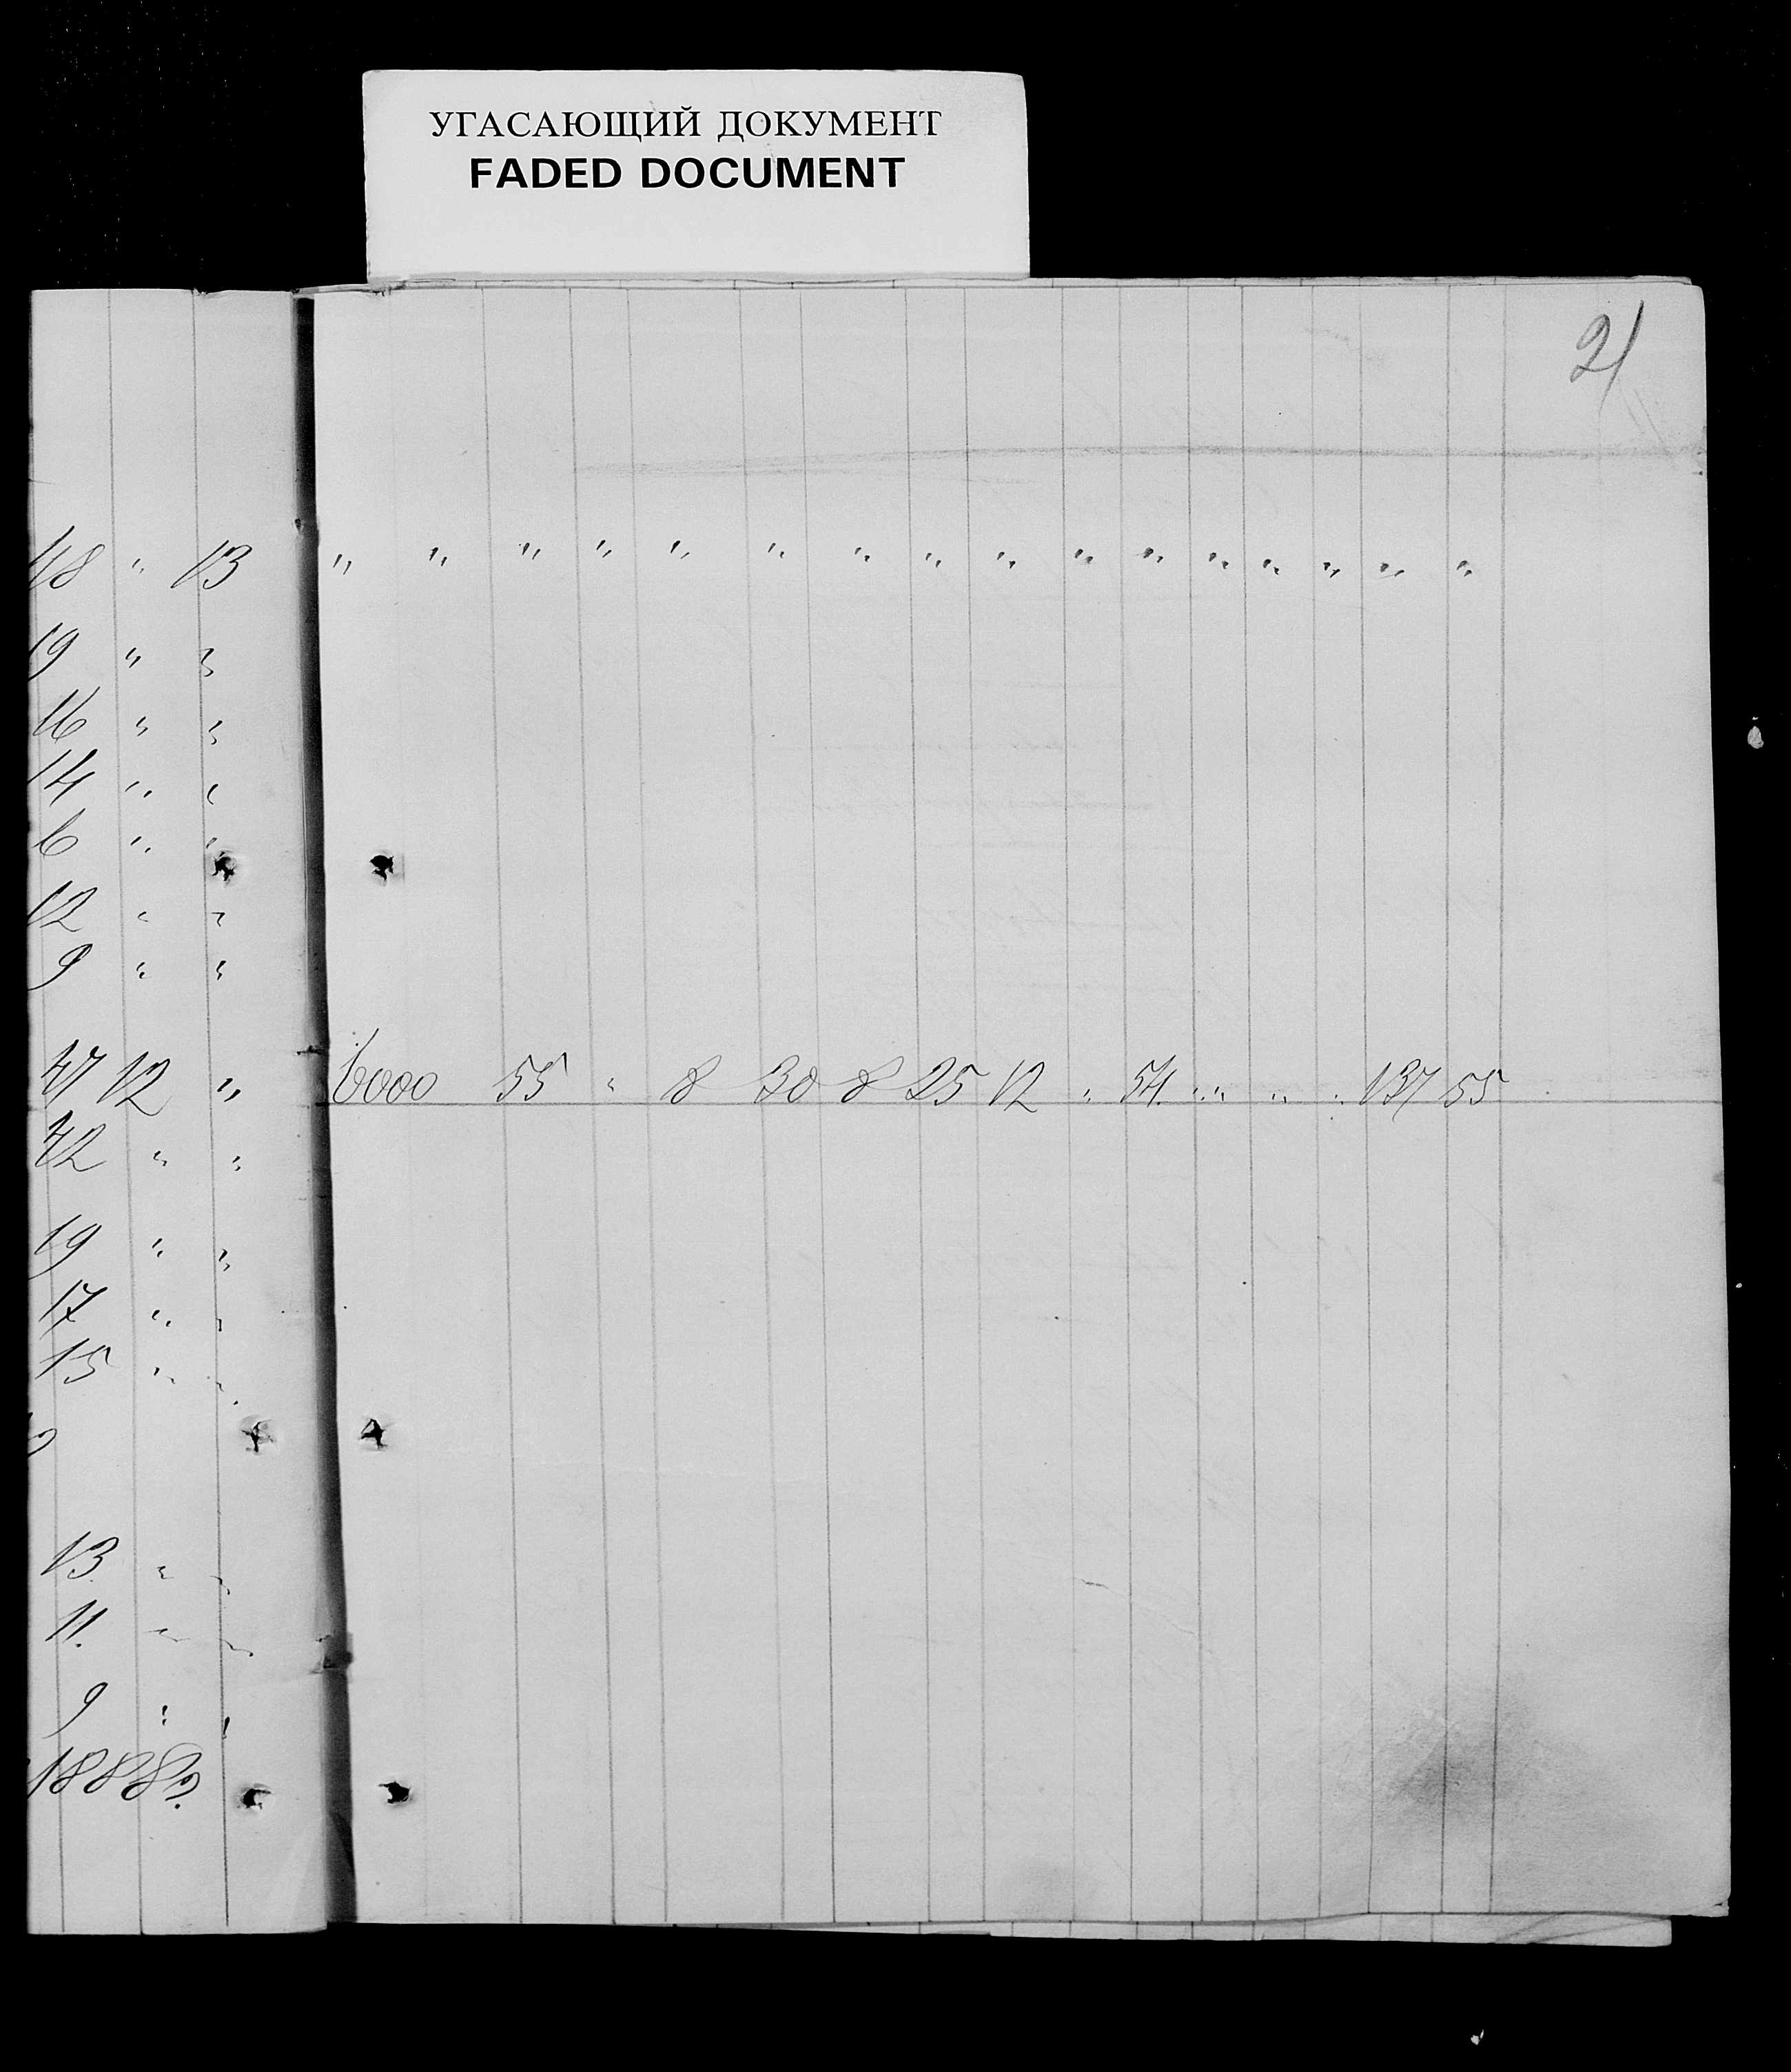 УГАСАЮЩИЙ ДОКУМЕНТ
FADED DOCUMENT
21
48 " 13 " " " " " " " " " " " " " " " "
19 " "
16 " "
14 " "
6 " "
12 " "
9 " "
47 12 " 6000 55 " 8 30 8 25 12 " 54 " " " " 137 55
42 " "
19 " "
17 " "
15 " "
13 " "
11. " "
9 " "
1888 г.